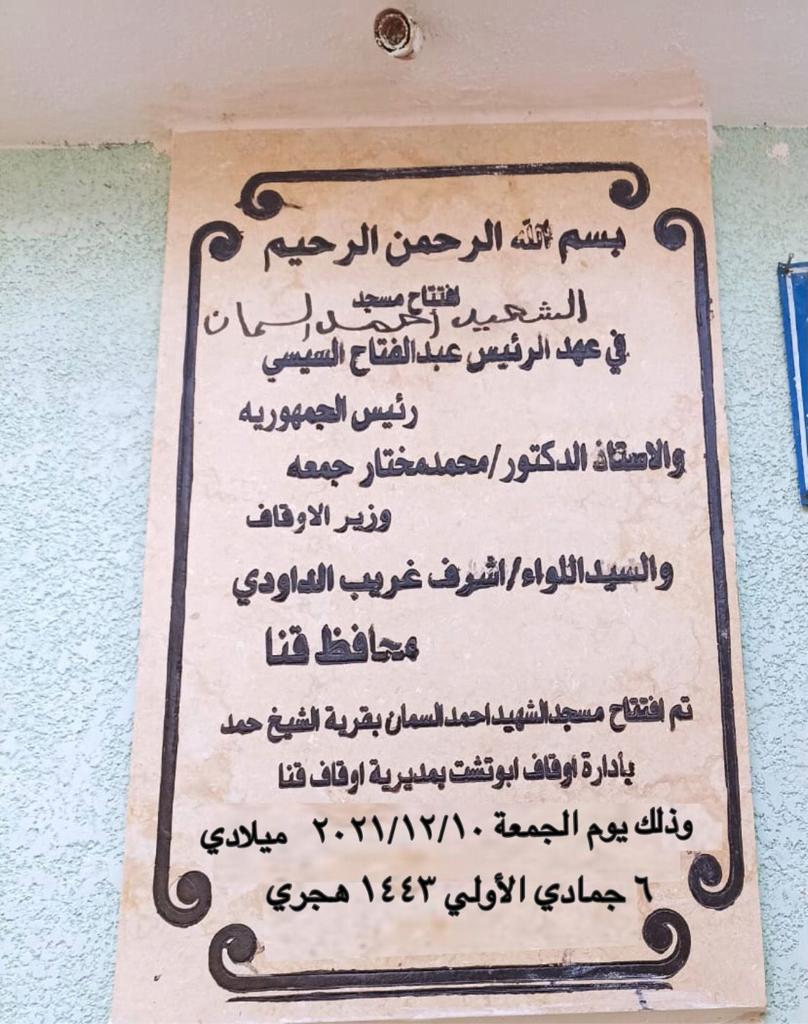 بسم الله الرحمن الرحيم
افتتاح مسجد
الشهيد احمد السمان
في عهد الرئيس عبدالفتاح السيسي
رئيس الجمهوريه
والاستاذ الدكتور/محمدمختار جمعه
وزير الاوقاف
والسيداللواء/اشرف غريب الداودي
محافظ قنا
تم افتتاح مسجدالشهيداحمدالسمان بقرية الشيخ حمد
بأدارة اوقاف ابوتشت بمديرية اوقاف قنا
وذلك يوم الجمعة ٢٠٢١/١٢/١٠ ميلادي
٦ جمادي الأولي ١٤٤٣ هجري